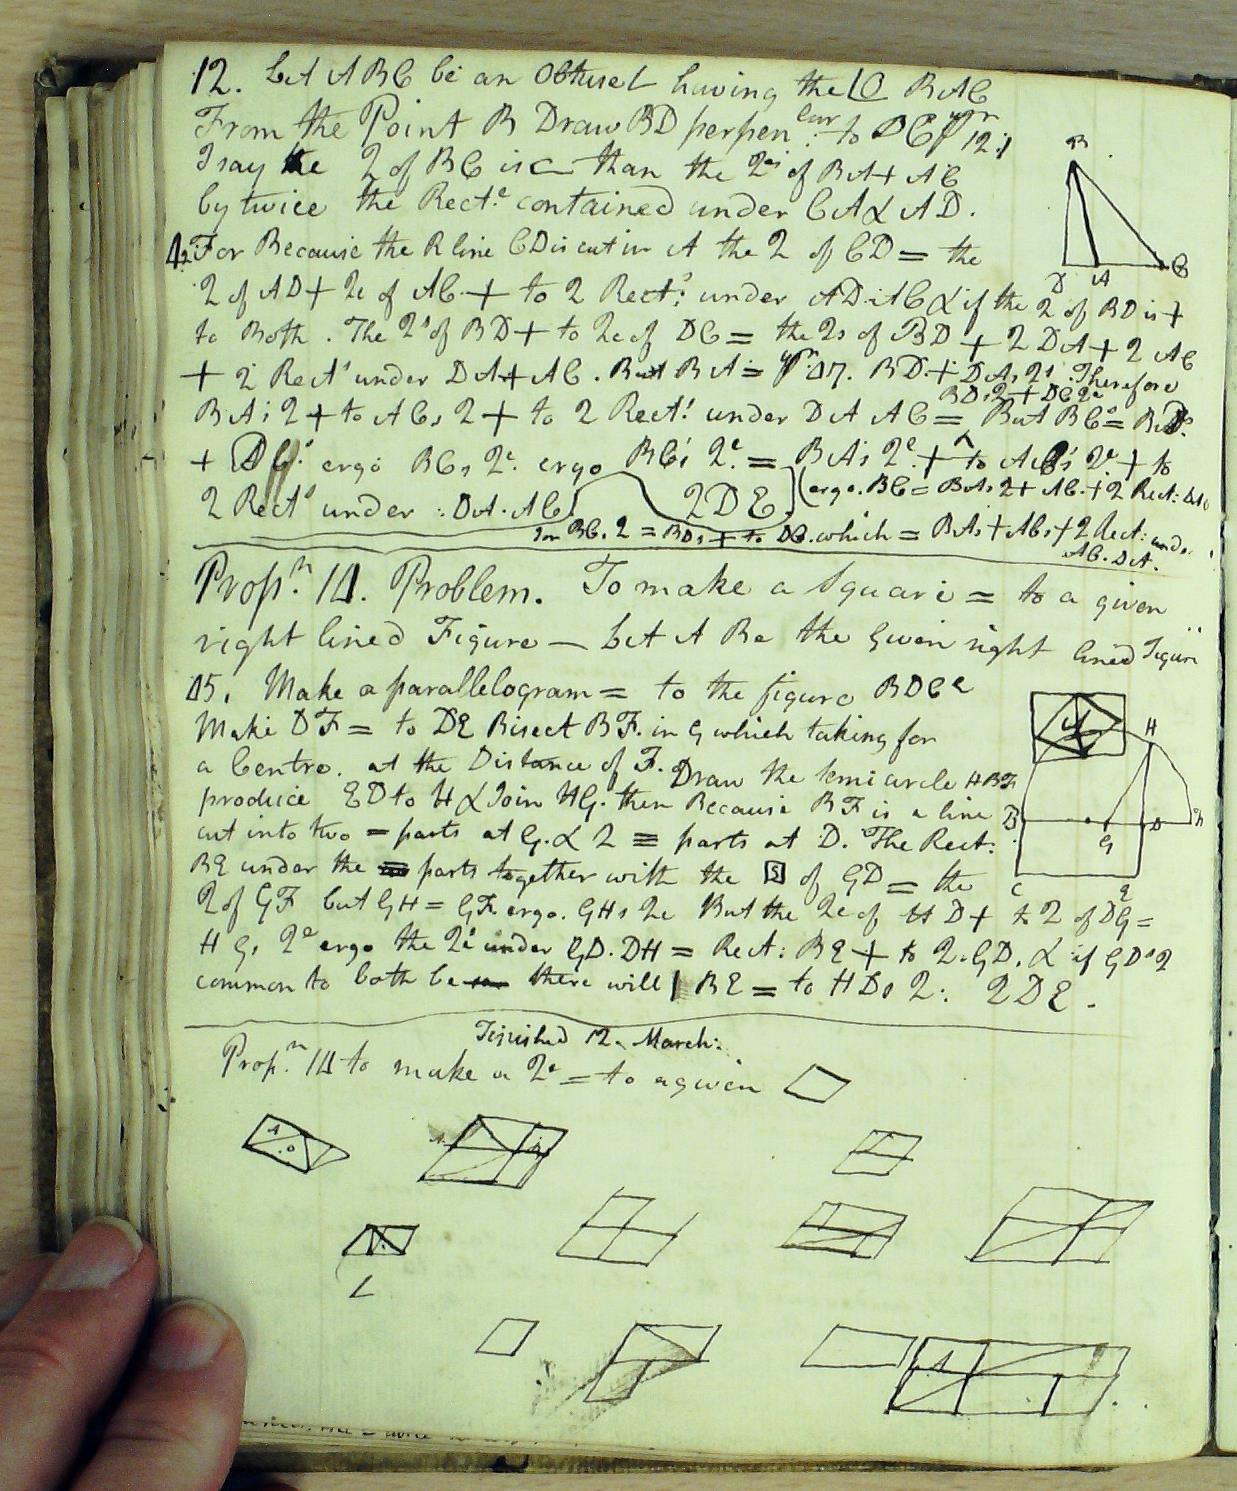 12. Let ABC be an Obtuse L having the LO BAC
From the Point B Draw BD perpen lar to DC 12.1
I say the 2 of BC is ⊏ than the 2es of BA + AC
by twice the Rect.e contained under CA & AD.
For Because the R line CD is cut in A the 2 of CD = the
2 of AD + 2e of AC + to 2 Rect:s under AD. AC & if the 2 of BD is +
to Both. The 2s of BD + to 2e of DC = the 2s of BD + 2 DA + 2 AC
+ 2 Rects under DA + AC. But BA = 47. BD + DAs 2s. Therefore
BDs 2 + DC 2e
BAs 2 + to ACs 2 + to 2 Rect.s under DA AC = But BC =
+ ergo BCs 2e. ergo BCs 2e. = BAs 2e. + to ACs 2e + to
2 Rects under : DA. AC 2DE. (ergo. BC = BAs 2 + AC. + 2 Rect:
for BC. 2 = BDs + to DC. which = BAs + ACs + 2 Rect: under
AC. DA.
Propn. 14. Problem. To make a Square = to a given
right lined Figure — Let A Be the Given right lined Figure
45. Make a parallelogram = to the figure BDCE
Make DF = to DE Bisect BF. in G which taking for
a Centre. at the Distance of F. Draw the semicircle HBF
produce ED to H & Join HG. then Because BF is a line
cut into two = parts at G. & 2 ≡ parts at D. The Rect:
BE under the parts together with the S of GD = the
2 of GF but GH = GF. ergo. GHs 2e But the 2e of HD + to 2 of DG =
HGs 2e ergo the 2e under GD. DH = Rect: BE + to 2. GD. & if GDs 2
common to both be there will | BE = to HDs 2: 2DE.
Finished 12. March:
Propn. 14 to make a 2e = to a given ▱
B
D A C
A H
B G D
C E
A
A
A